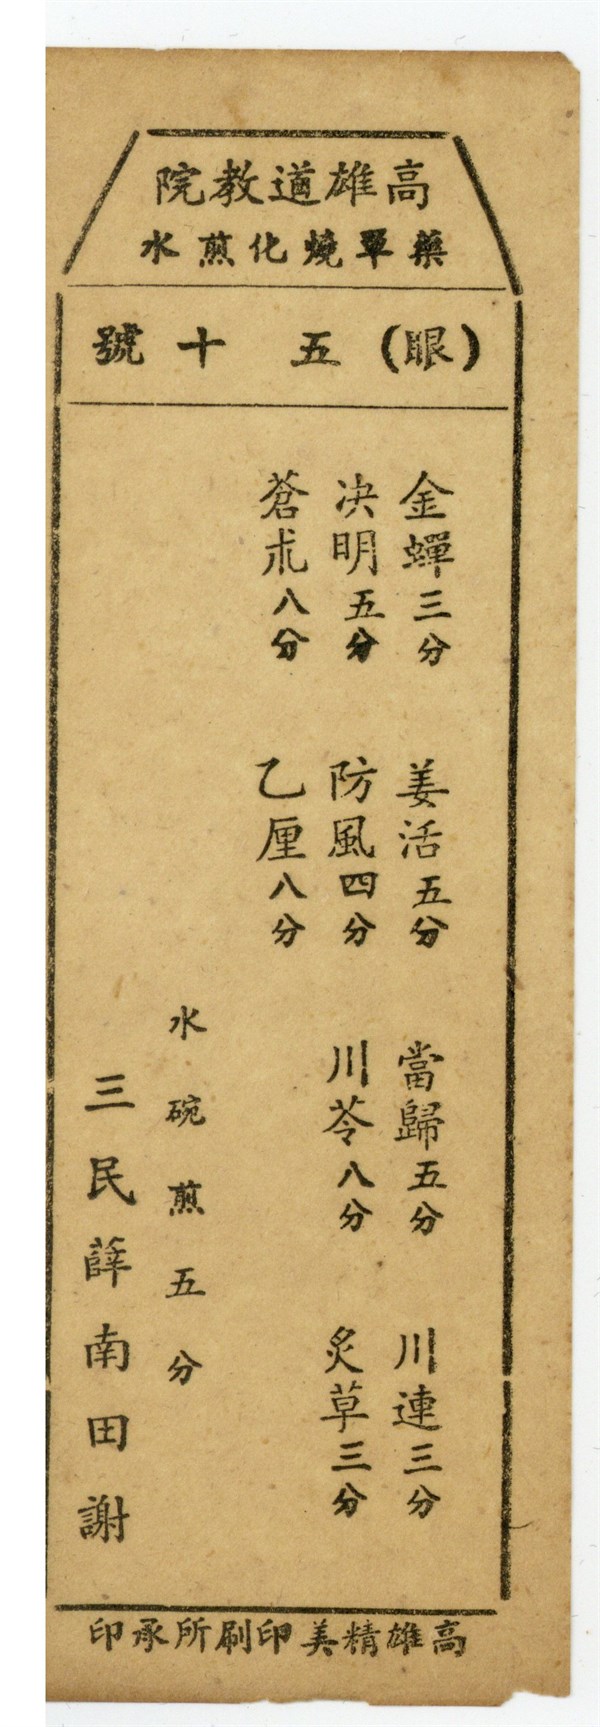 高雄道教院
藥單燒化煎水
(眼)五十號
金蟬三分 姜活五分 當歸五分 川連三分
决明五分 防風四分 川芩八分 炙草三分
蒼朮八分 乙厘八分
水碗煎五分
三民薛南田謝
高雄精美印刷所承印